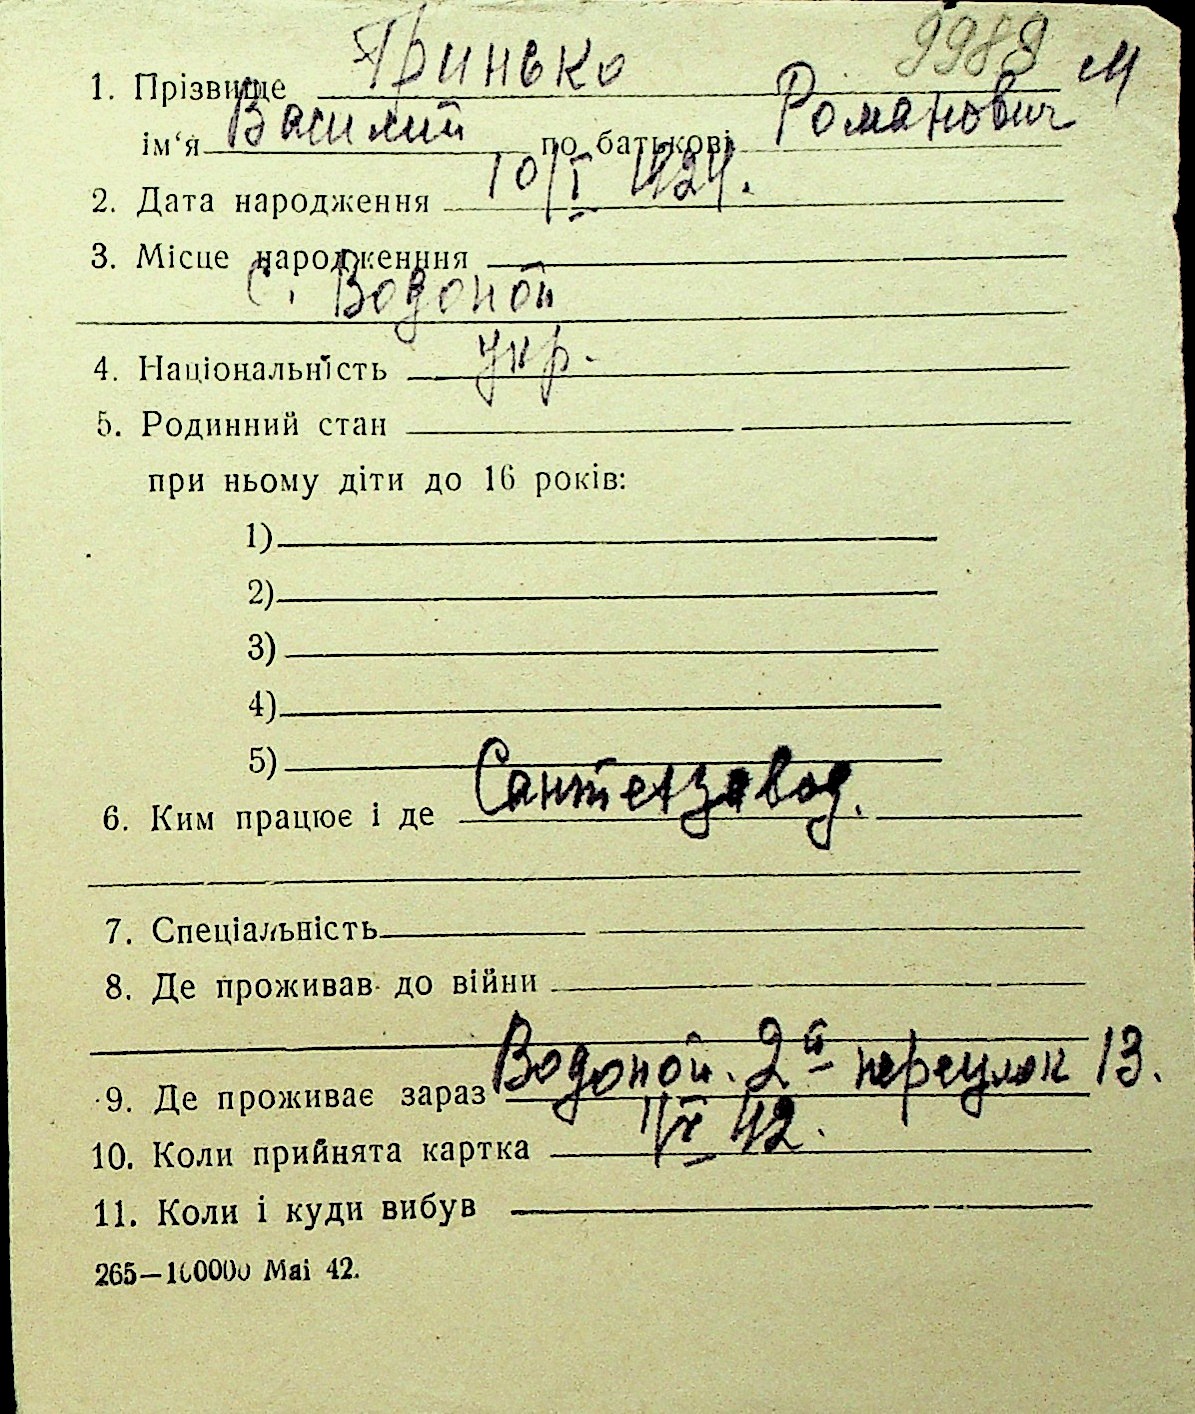 9989 М
1. Прізвище Гринько
ім'я Василий по батькові Романович
2. Дата народження 10/I 1924.
3. Місце народженння
с. Водопой
4. Національність укр.
5. Родинний стан
при ньому діти до 16 років:
1)
2)
3)
4)
5)
6. Ким працює і де Сантехзавод.
7. Спеціальність
8. Де проживав до війни
9. Де проживає зараз Водопой. 2й переулок 13.
10. Коли прийнята картка 42.
11. Коли і куди вибув
265—100000 Mai 42.